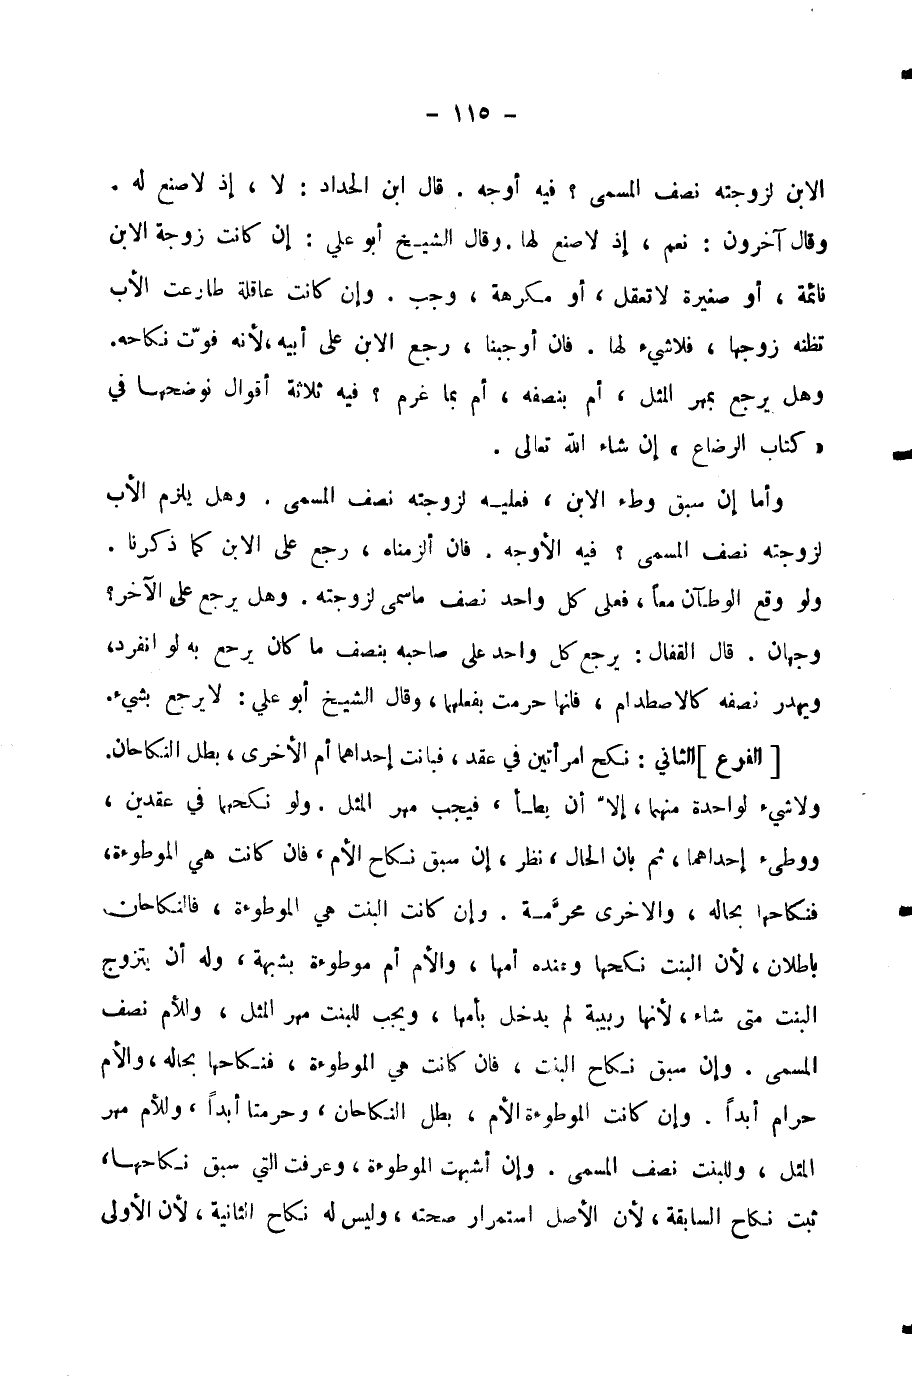 - ١١٥ -
الابن لزوجته نصف المسمى ؟ فيه أوجه . قال ابن الحداد : لا ، إذ لاصنع له .
وقال آخرون : نعم ، إذ لاصنع لها . وقال الشيخ أبو علي : إن كانت زوجة الابن
نائمة ، أو صغيرة لاتعقل ، أو مكرهة ، وجب . وإن كانت عاقلة طاوعت الأب
تظنه زوجها ، فلاشيء لها . فان أوجبنا ، رجع الابن على أبيه ، لأنه فوّت نكاحه .
وهل يرجع بمهر المثل ، أم بنصفه ، أم بما غرم ؟ فيه ثلاثة أقوال نوضحها في
« كتاب الرضاع » إن شاء الله تعالى .
وأما إن سبق وطء الابن ، فعليه لزوجته نصف المسمى . وهل يلزم الأب
لزوجته نصف المسمى ؟ فيه الأوجه . فان ألزمناه ، رجع على الابن كما ذكرنا .
ولو وقع الوطآن معاً ، فعلى كل واحد نصف ماسمى لزوجته . وهل يرجع على الآخر؟
وجهان . قال القفال : يرجع كل واحد على صاحبه بنصف ما كان يرجع به لو انفرد،
ويهدر نصفه كالاصطدام ، فانها حرمت بفعلهما ، وقال الشيخ أبو علي : لايرجع بشيء.
[ الفرع ] الثاني : نكح امرأتين في عقد ، فبانت إحداهما أم الأخرى ، بطل النكاحان.
ولاشيء لواحدة منهما ، إلاّ أن يطأ ، فيجب مهر المثل . ولو نكحهما في عقدين ،
ووطىء إحداهما ، ثم بان الحال ، نظر ، إن سبق نكاح الأم ، فان كانت هي الموطوءة،
فنكاحها بحاله ، والاخرى محرّمة . وإن كانت البنت هي الموطوءة ، فالنكاحان
باطلان ، لأن البنت نكحها وعنده أمها ، والأم أم موطوءة بشبهة ، وله أن يتزوج
البنت متى شاء ، لأنها ربيبة لم يدخل بأمها ، ويجب للبنت مهر المثل ، وللأم نصف
المسمى . وإن سبق نكاح البنت ، فان كانت هي الموطوءة ، فنكاحها بحاله ، والأم
حرام أبداً . وإن كانت الموطوءة الأم ، بطل النكاحان ، وحرمتا أبداً ، وللأم مهر
المثل ، وللبنت نصف المسمى . وإن أشبهت الموطوءة ، وعرفت التي سبق نكاحها ،
ثبت نكاح السابقة ، لأن الأصل استمرار صحته ، وليس له نكاح الثانية ، لأن الأولى